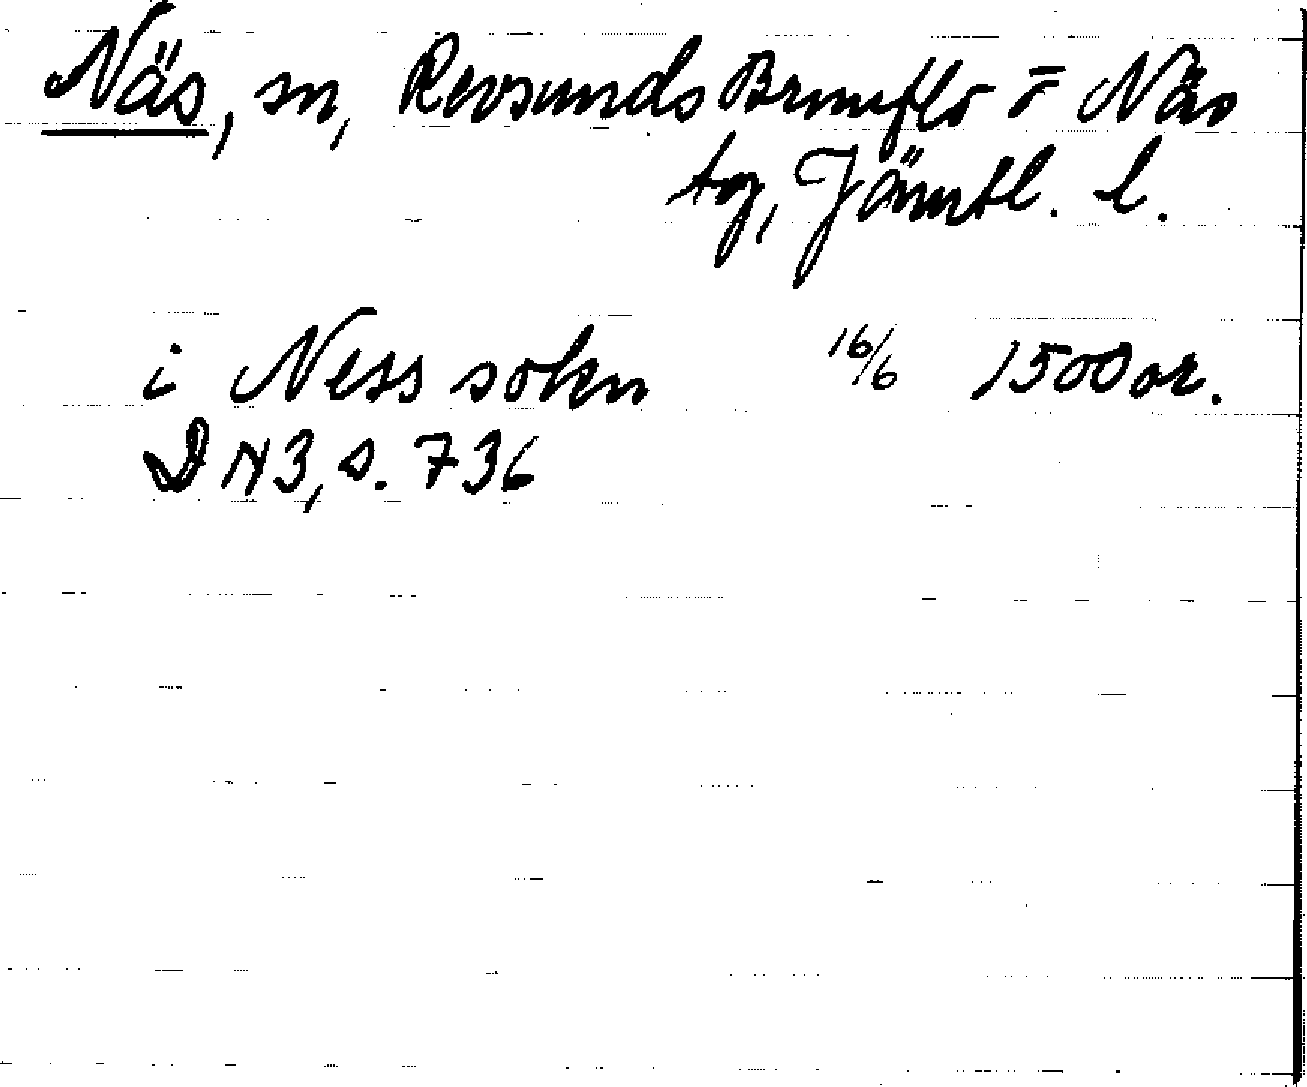 Näs, sn, Revsunds Brunflo o Näs
tg, Jämtl. l.
i Ness sokn 16/6 1500 or.
DN 3, s. 736